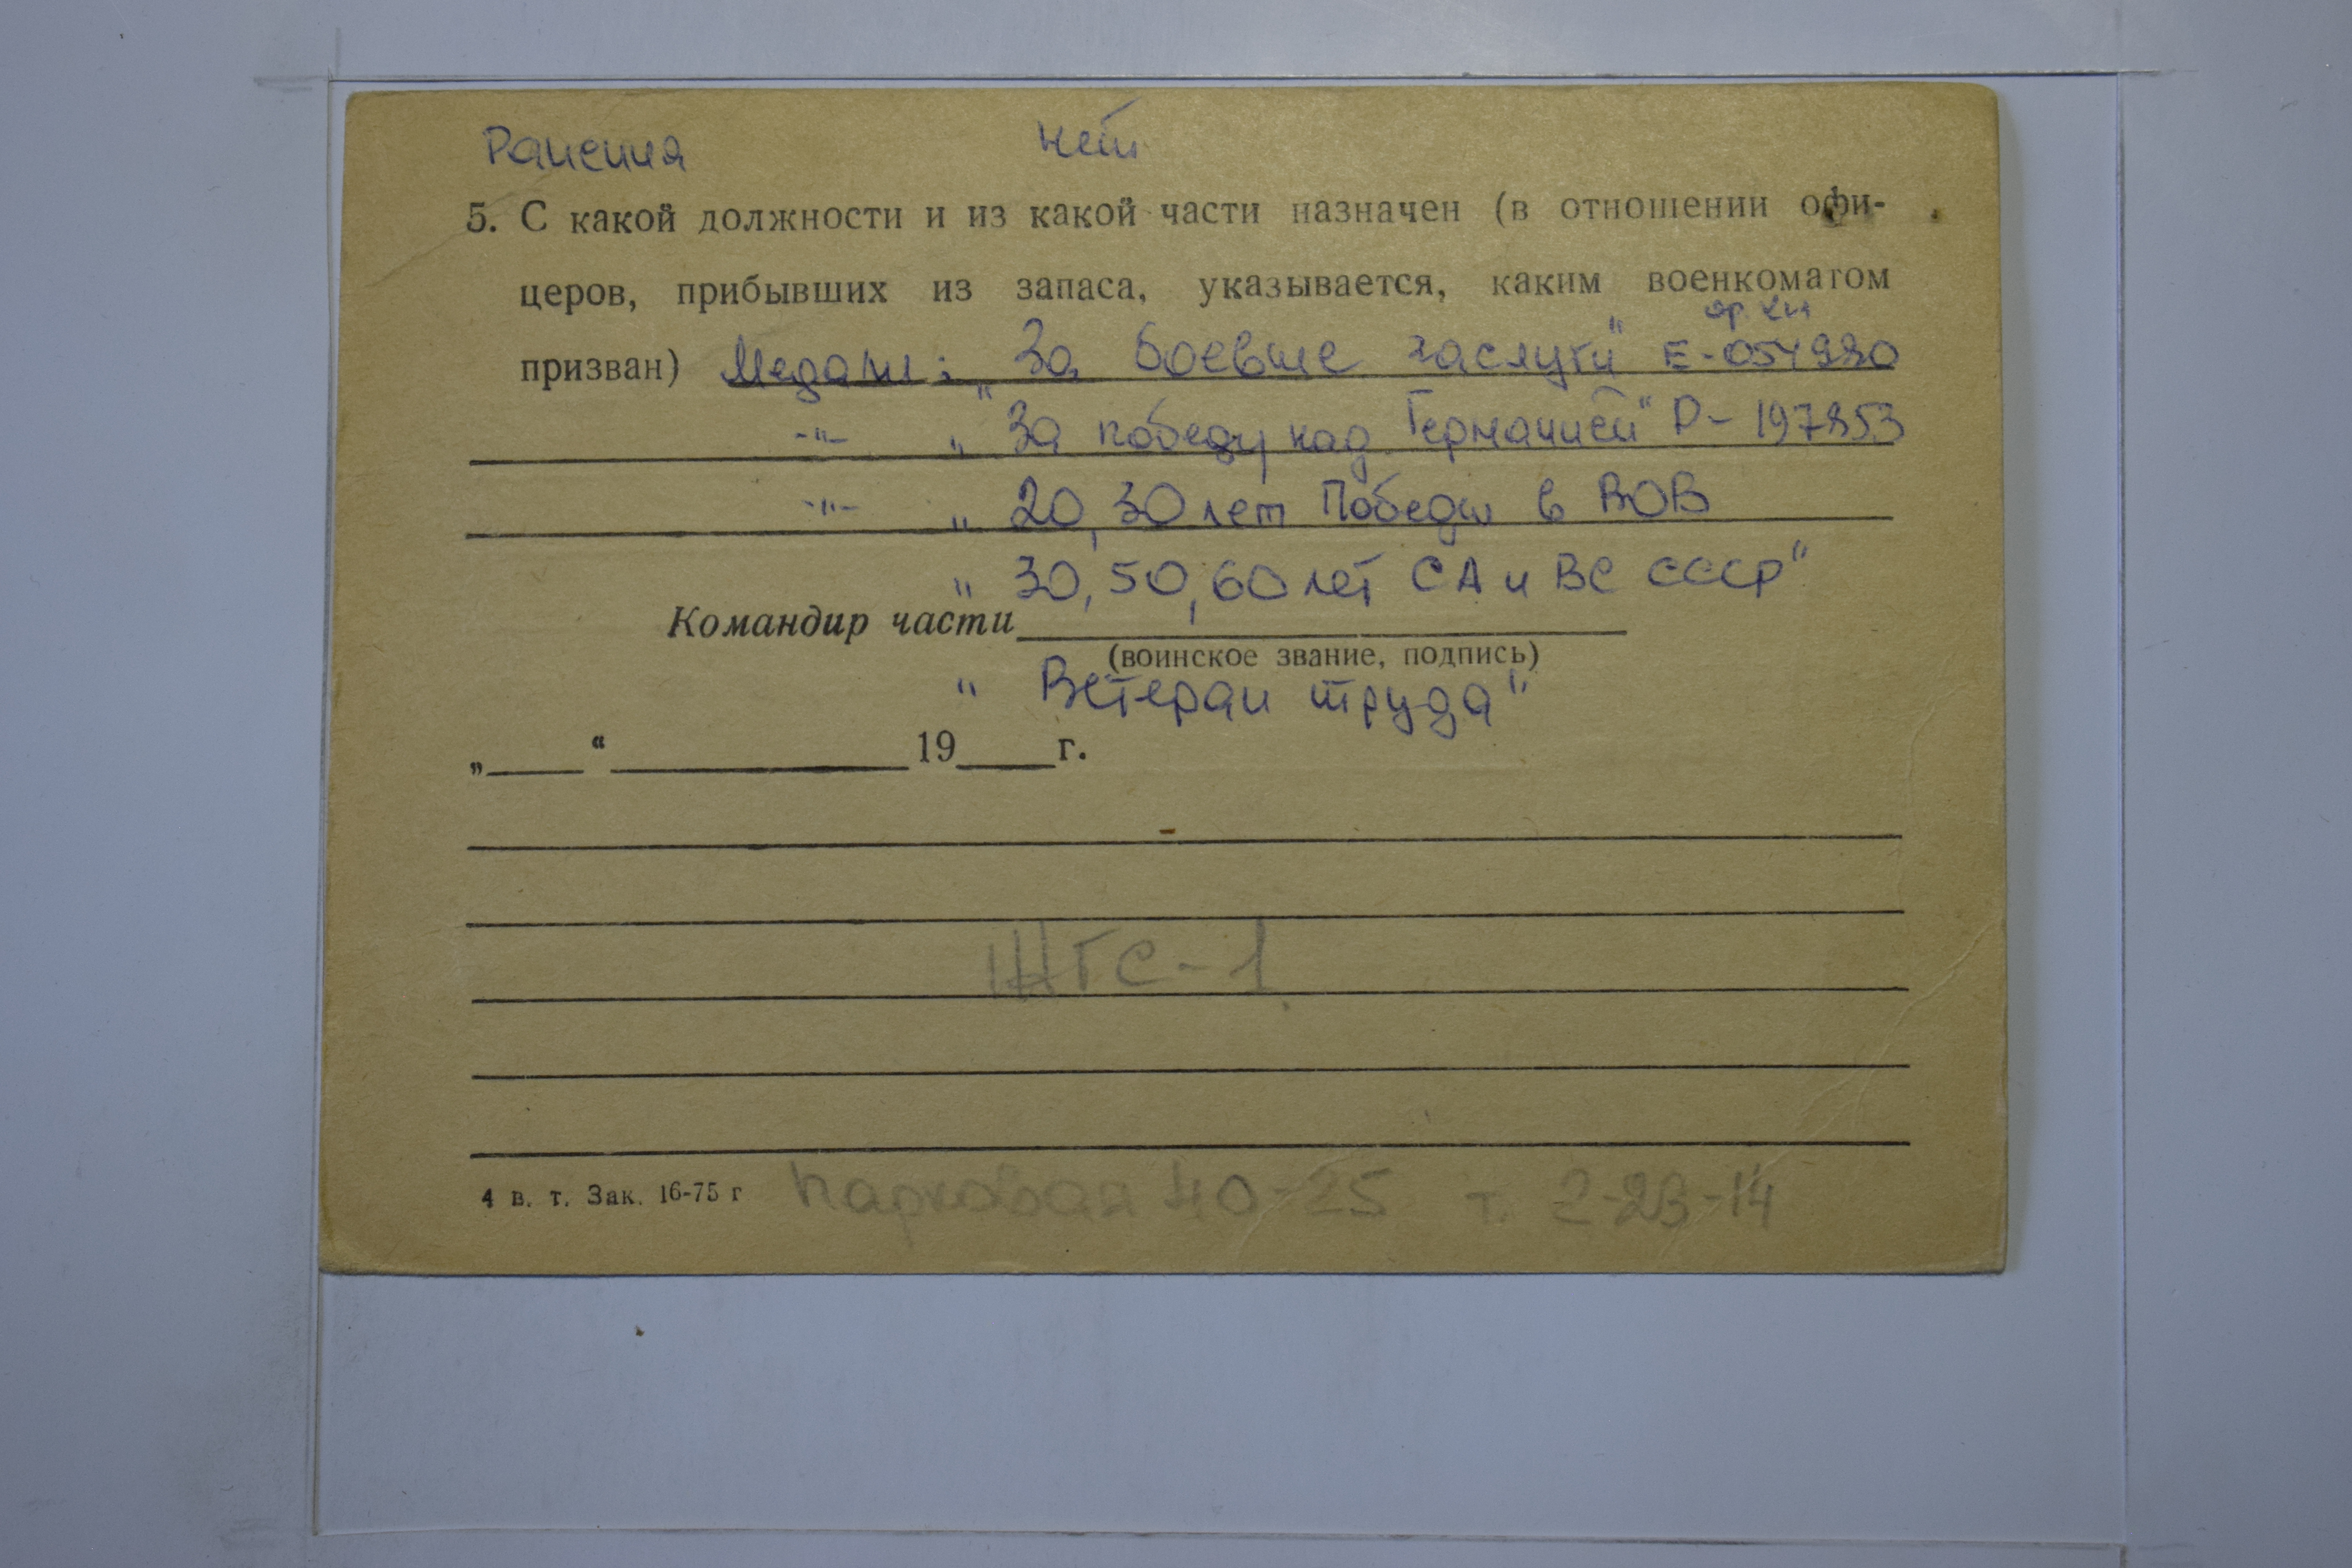 Ранения нет
5. С какой должности и из какой части назначен (в отношении офи-
церов, прибывших из запаса, указывается, каким военкоматом
ор. кн
призван) Медали: „За боевые заслуги" Е-054990
-"- „За победу над Германией" Р-197853
-"- „20, 30 лет Победы в ВОВ
" 30, 50, 60 лет СА и ВС СССР"
Командир части
(воинское звание, подпись)
" Ветеран труда"
„ “ 19 г.
ЖГС-1
4 в. т. Зак. 16-75 г Парковая 40-25 т. 2-23-14